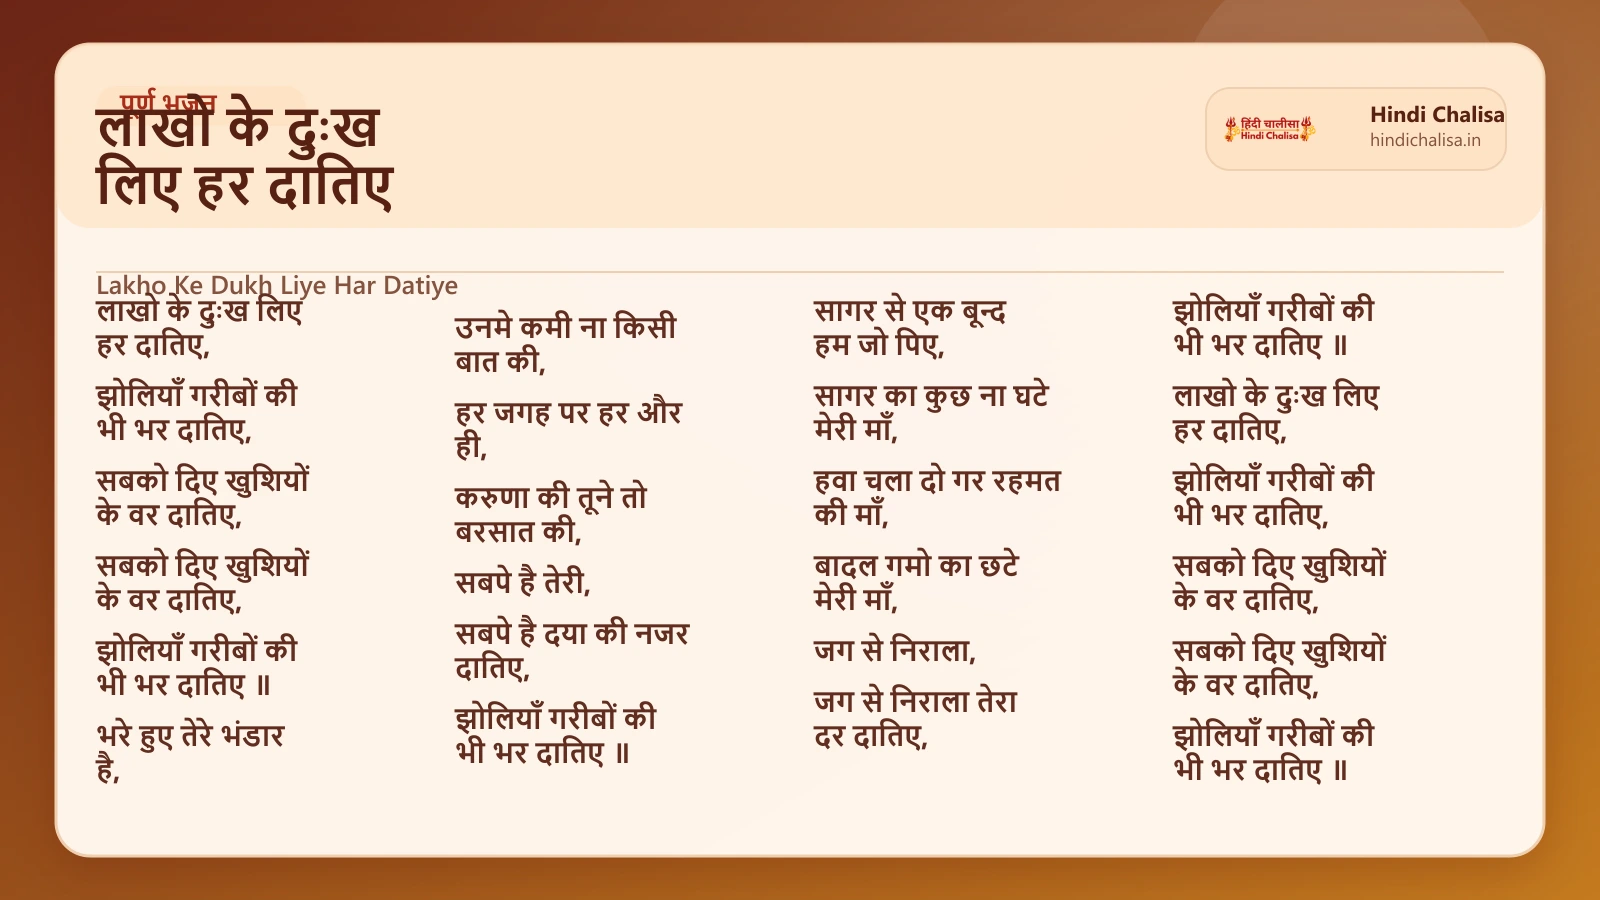 पूर्ण भजन
लाखो के दुःख
लिए हर दातिए
हिंदी चालीसा
Hindi Chalisa
Hindi Chalisa
hindichalisa.in
Lakho Ke Dukh Liye Har Datiye
लाखो के दुःख लिए
हर दातिए,
झोलियाँ गरीबों की
भी भर दातिए,
सबको दिए खुशियों
के वर दातिए,
सबको दिए खुशियों
के वर दातिए,
झोलियाँ गरीबों की
भी भर दातिए ॥
भरे हुए तेरे भंडार
है,
उनमे कमी ना किसी
बात की,
हर जगह पर हर और
ही,
करुणा की तूने तो
बरसात की,
सबपे है तेरी,
सबपे है दया की नजर
दातिए,
झोलियाँ गरीबों की
भी भर दातिए ॥
सागर से एक बून्द
हम जो पिए,
सागर का कुछ ना घटे
मेरी माँ,
हवा चला दो गर रहमत
की माँ,
बादल गमो का छटे
मेरी माँ,
जग से निराला,
जग से निराला तेरा
दर दातिए,
झोलियाँ गरीबों की
भी भर दातिए ॥
लाखो के दुःख लिए
हर दातिए,
झोलियाँ गरीबों की
भी भर दातिए,
सबको दिए खुशियों
के वर दातिए,
सबको दिए खुशियों
के वर दातिए,
झोलियाँ गरीबों की
भी भर दातिए ॥